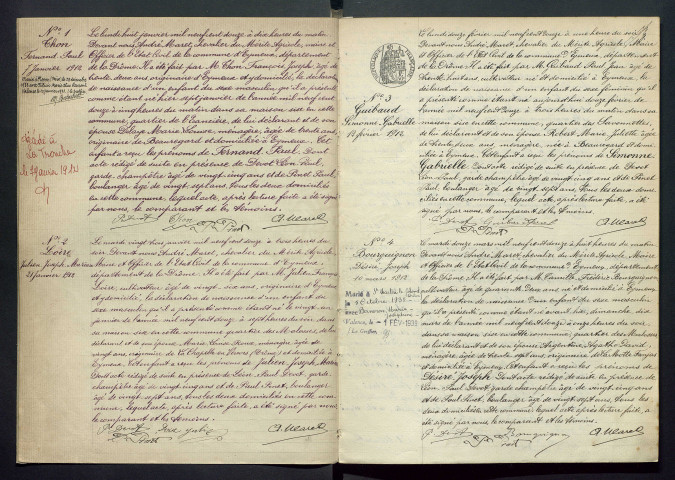 N° 1
Thon
Fernand Paul
7 janvier 1912
Décédé à
La Tronche
le 9 janvier 1921
Le lundi huit janvier mil neuf cent douze à dix heures du matin
Devant nous André Maret, chevalier du Mérite Agricole, maire et
Officier de l'Etat Civil de la commune d'Eymeux, département
de la Drôme. Il a été fait par M. Thon François Joseph, âgé de
trente deux ans, originaire d'Eymeux et y domicilié, la déclaration
de naissance d'un enfant du sexe masculin qu'il a présenté
comme étant né hier sept janvier de l'année mil neuf cent
douze à cinq heures du matin dans sa maison sise en cette
commune, quartier de l'Ecancière, de lui déclarant et de son
épouse Marie Louise, ménagère, âgée de trente ans,
originaire de Beauregard et domiciliée à Eymeux. Cet
enfant a reçu les prénoms de Fernand Paul. Dont
acte rédigé de suite en présence de Devot Léon Paul,
garde champêtre âgé de vingt cinq ans et de Pinet Paul,
boulanger âgé de vingt sept ans, tous les deux domiciliés
en cette commune, lequel acte, après lecture faite a été signé
par nous, le comparant et les témoins.
Thon
A. Maret
N° 2
Loire
Julien Joseph Marius
23 janvier 1912
Le mardi vingt trois janvier mil neuf cent douze à trois heures du
soir Devant nous André Maret, chevalier du Mérite Agricole,
Maire et Officier de l'Etat Civil de la commune d'Eymeux
département de la Drôme. Il a été fait par M. Jules François
Loire, cultivateur âgé de vingt six ans, originaire d'Eymeux
et y domicilié, la déclaration de naissance d'un enfant du
sexe masculin qu'il a présenté comme étant né le vingt un
janvier de l'année mil neuf cent douze à sept heures du soir dans
sa maison sise en cette commune quartier des de lui
déclarant et de son épouse Marie ménagère âgée de
vingt ans, originaire de La Chapelle en Vercors (Drôme) et domiciliée à
Eymeux. Cet enfant a reçu les prénoms de Julien Joseph Marius
Dont acte rédigé de suite en présence de Léon Paul Devot, garde
champêtre âgé de vingt cinq ans et de Paul Pinet, boulanger
âgé de vingt sept ans, tous les deux domiciliés en cette com-
mune, lequel acte, après lecture faite, a été signé par nous
le comparant et les témoins.
Loire Jules
A. Maret
N° 3
Guibaud
Simonne Gabrielle
12 février 1912
Le lundi douze février mil neuf cent douze à une heure du soir
Devant nous André Maret, chevalier du Mérite Agricole, Maire
et Officier de l'Etat Civil de la commune d'Eymeux, département
de la Drôme. Il a été fait par M. Guibaud Paul Jean âgé de
trente huit ans, cultivateur né et domicilié à Eymeux, la
déclaration de naissance d'un enfant du sexe féminin qu'il a
présenté comme étant né aujourd'hui douze février de
l'année mil neuf cent douze à trois heures du matin dans sa
maison sise en cette commune, quartier des
de lui déclarant et de son épouse Robert Marie Juliette âgée
de trente deux ans, ménagère, née à Beauregard et domi-
ciliée à Eymeux. Cet enfant a reçu les prénoms de Simonne
Gabrielle. Dont acte rédigé de suite en présence de Devot
Léon Paul, garde champêtre âgé de vingt cinq ans et de Pinet
Paul, boulanger âgé de vingt sept ans, tous les deux domi-
ciliés en cette commune, lequel acte, après lecture faite, a été
signé par nous le comparant et les témoins.
A. Maret
N° 4
Bourguignon
Désiré Joseph
10 mars 1912
Marié à
le Octobre 1931
avec
1 FEV. 1933
Le mardi douze mars mil neuf cent douze à huit heures du matin
Devant nous André Maret, chevalier du Mérite Agricole, Maire
et Officier de l'Etat Civil de la commune d'Eymeux, département
de la Drôme. Il a été fait par M. Camille Frédéric Bourguignon
cultivateur âgé de quarante deux ans né et domicilié à Eymeux,
la déclaration de naissance d'un enfant du sexe masculin
qu'il a présenté comme étant né avant hier, dimanche, dix
mars de l'année mil neuf cent douze à onze heures du soir,
dans sa maison sise en cette commune, quartier des
de lui déclarant et de son épouse Argentine Agathe David,
ménagère âgée de trente sept ans, originaire de
et domiciliée à Eymeux. Cet enfant a reçu les prénoms de
Désiré Joseph. Dont acte rédigé de suite en présence de
Léon Paul Devot garde champêtre âgé de vingt cinq ans et
de Paul Pinet, boulanger âgé de vingt sept ans, tous les
deux domiciliés en cette commune, lequel acte après lecture faite, a
été signé par nous, le comparant et les témoins.
Bourguignon
A. Maret